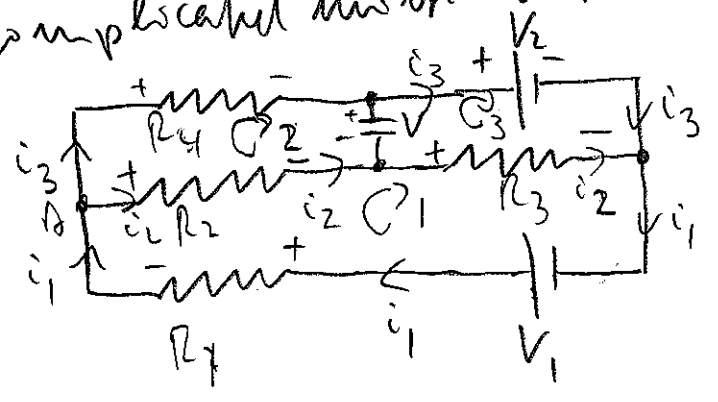 complicated
V2
+ - i3 + -
R4 2 + - V 3 i3
i3 + - + -
A i2 R2 i2 1 R3 i2
i1 - + i1
R1 i1 V1